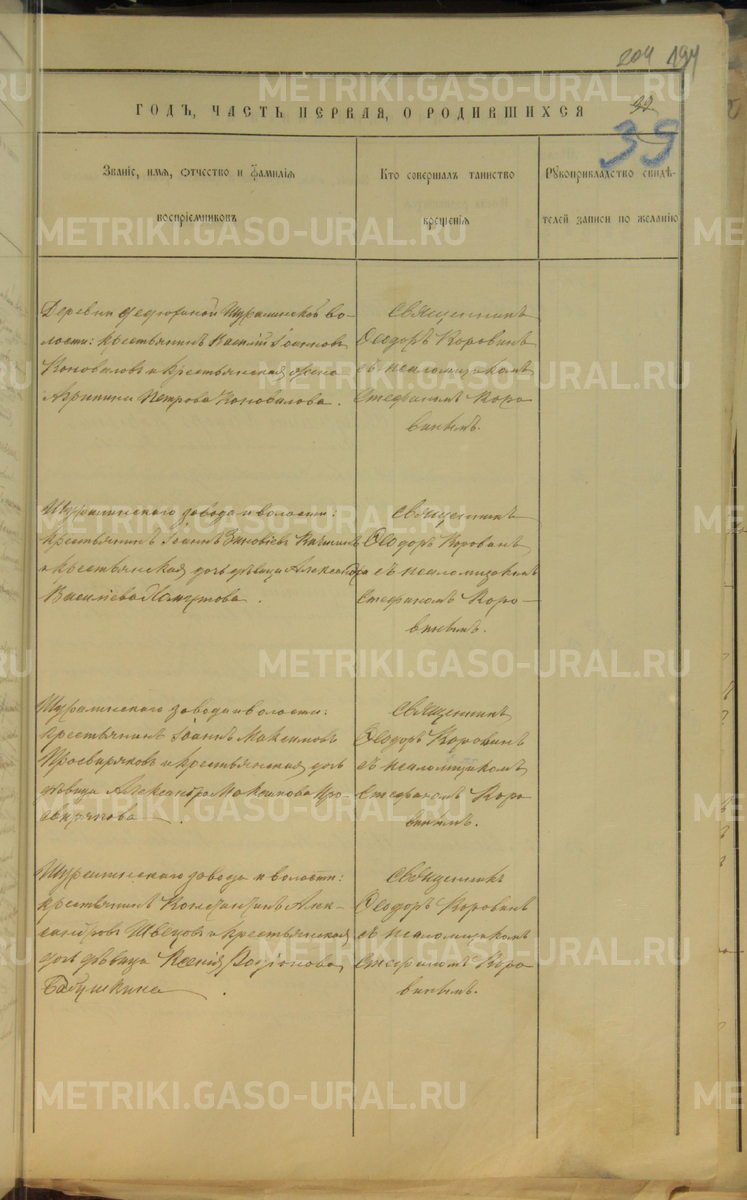 204 194
ГОДЪ, ЧАСТЬ ПЕРВАЯ, О РОДИВШИХСЯ
39
Званіе, имя, отчество и фамилія
воспріемниковъ
Кто совершалъ таинство
крещенія
Рукоприкладство свидѣ-
телей записи по желанію
Деревни Федюниной Шуралинской во-
лости: крестьянинъ Василій Іоанновъ
Коноваловъ и крестьянская жена
Агрипина Петрова Коновалова.
Священникъ
Ѳеодоръ Коровинъ
съ псаломщикомъ
Стефаномъ Коро
винымъ.
Шуралинскаго завода и волости:
крестьянинъ Іоаннъ Зиновіевъ
и крестьянская дочь дѣвица Александра
Василіева
Священникъ
Ѳеодоръ Коровинъ
съ псаломщикомъ
Стефаномъ Коро-
винымъ.
Шуралинскаго завода и волости:
крестьянинъ Іоаннъ Максимовъ
Просвиряковъ и крестьянская дочь
дѣвица Александра Максимова Про-
свирякова.
Священникъ
Ѳеодоръ Коровинъ
съ псаломщикомъ
Стефаномъ Коро
винымъ.
Шуралинскаго завода и волости:
крестьянинъ Константинъ Алек-
сандровъ Швецовъ и крестьянская
дочь дѣвица Ксенія Родіонова
Бабушкина.
Священникъ
Ѳеодоръ Коровинъ
съ псаломщикомъ
Стефаномъ Коро
винымъ.
METRIKI.GASO-URAL.RU